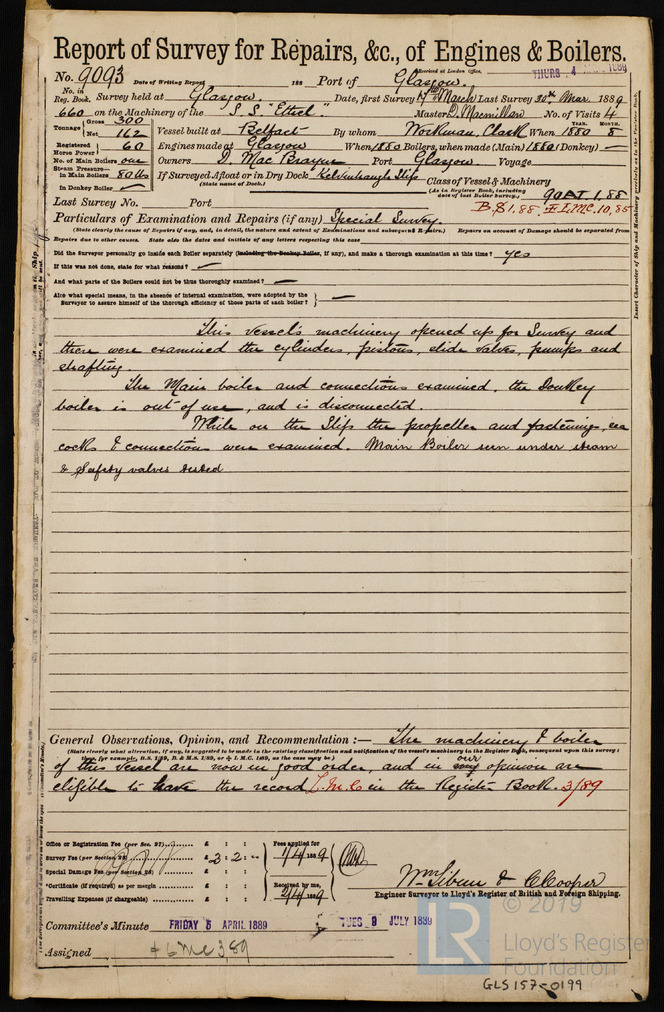 Report of Survey for Repairs, &c., of Engines & Boilers.
No. 9093 Date of Writing Report 188 Port of Glasgow. Received at London Office, THURS 4 1889
No. in Reg. Book. Survey held at Glasgow. Date, first Survey 14th March Last Survey 30th Mar. 1889
660 on the Machinery of the S.S. "Ethel". Master D. Macmillan No. of Visits 4
Tonnage Gross 300 Net 162 Vessel built at Belfast By whom Workman, Clark When YEAR. 1880 MONTH. 8
Registered Horse Power 60 Engines made at Glasgow When 1880 Boilers, when made (Main) 1880 (Donkey) —
No. of Main Boilers one Owners D. Mac Brayne Port Glasgow. Voyage
Steam Pressure— in Main Boilers 80 lbs If Surveyed Afloat or in Dry Dock Kelvinhaugh Slip
(State name of Dock.) Class of Vessel & Machinery
In Donkey Boiler — (As in Register Book, including date of last Boiler Survey.) 90 A1. 1,88
Last Survey No. Port B.S 1,88. LMC. 10,85
Particulars of Examination and Repairs (if any) Special Survey.
(State clearly the cause of Repairs if any, and, in detail, the nature and extent of Examinations and subsequent Repairs.) Repairs on account of Damage should be separated from
Repairs due to other causes. State also the dates and initials of any letters respecting this case
Did the Surveyor personally go inside each Boiler separately (including the Donkey Boiler, if any), and make a thorough examination at this time? yes
If this was not done, state for what reasons? —
And what parts of the Boilers could not be thoroughly examined? —
Also what special means, in the absence of internal examination, were adopted by the
Surveyor to assure himself of the thorough efficiency of those parts of each boiler? —
This vessel's machinery opened up for Survey and
there were examined the cylinders, pistons, slide valves, pumps and
shafting.
The Main boiler and connections examined, the Donkey
boiler is out of use, and is disconnected.
While on the Slip the propeller and fastenings, sea
cocks & connections were examined. Main Boiler seen under steam
& Safety valves tested
General Observations, Opinion, and Recommendation :— The machinery & boiler
(State clearly what alteration, if any, is suggested to be made in the existing classification and notification of the vessel's machinery in the Register Book, consequent upon this survey;
thus, for example, B.S. 1/89, B. & M.S. 1/89, or L.M.C. 1/89, as the case may be.)
of this vessel are now in good order, and in our opinion are
eligible to have the record L.M.C in the Register Book. 3/89
Office or Registration Fee (per Sec. 27) £ : :
Survey Fee (per Section 28) £ 2 : 2 : —
Special Damage Fee (per Section 28) £ : :
*Certificate (if required) as per margin £ : :
Travelling Expenses (if chargeable) £ : :
Fees applied for 1/4/1889
Received by me, 2/4/1889
Wm Sibun & C Cooper
Engineer Surveyor to Lloyd's Register of British and Foreign Shipping.
Committee's Minute FRIDAY 5 APRIL 1889 TUES 9 JULY 1889
Assigned + LMC 3 89
© 2019
LR
Lloyd's Register
Foundation
GLS157-0199